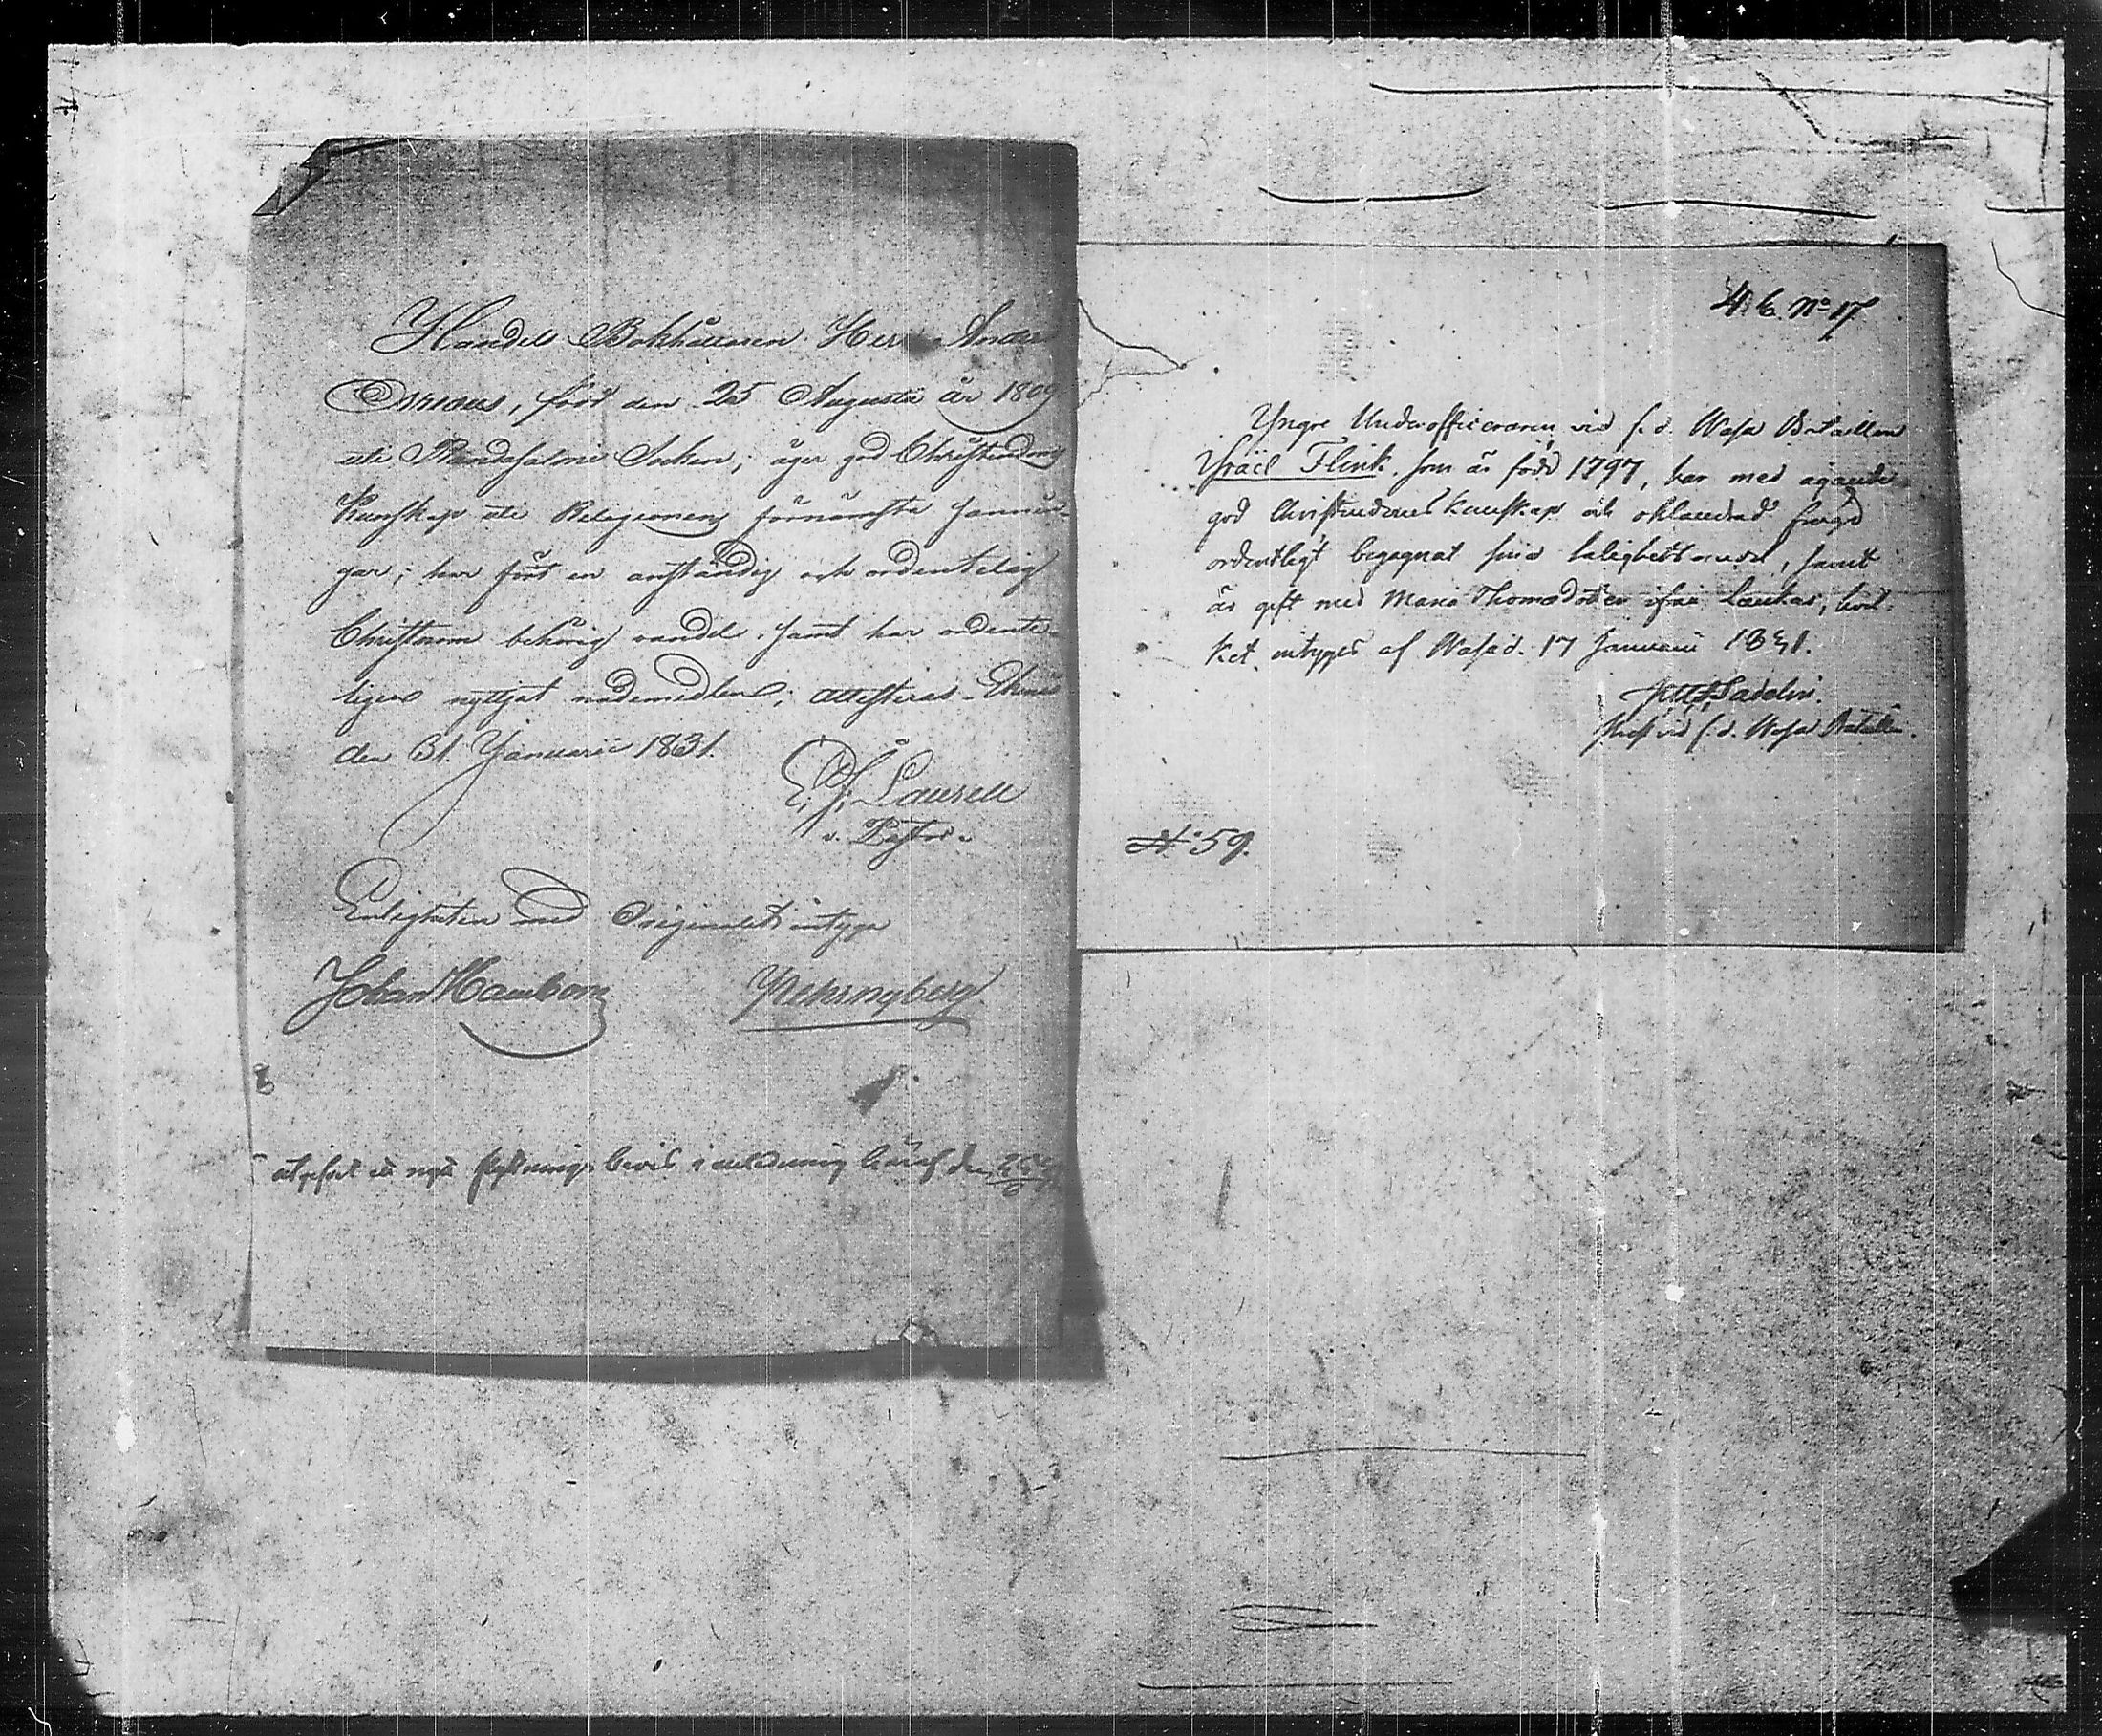 Handels Bokhållaren Herr Anders
född den 25 Augusti år 1809
uti Randasalmi Socken; äger god Christendoms
Kunskap uti Religionens förnämsta sannin-
gar; har fört en anständig och ordentelig
Christnom behörig vandel, samt har ordente-
ligen nyttjat nådemedlen; attesteras. Ekenäs
den 31. Januarii 1831.
E. J. Laurell
v. Pastor.
Enligheten med Originalet intyga
Johan
utgifvit nytt flyttnings bevis i anledning häraf den
4. E. No 17
Yngre Underofficeraren vid f. d. Wasa Bataillon
Israël Flink, som är född 1797, har med ägande
god Christendoms kunskap och oklandrad frägd
ordentligt begagnat sina salighetsmedel, samt
är gift med Maria Thomædotter ifrån Laukas, hvil-
ket intygas af Wasa d. 17 Januarii 1831.
Sadelin.
Prest vid f. d. Wasa Bataillon.
No 59.